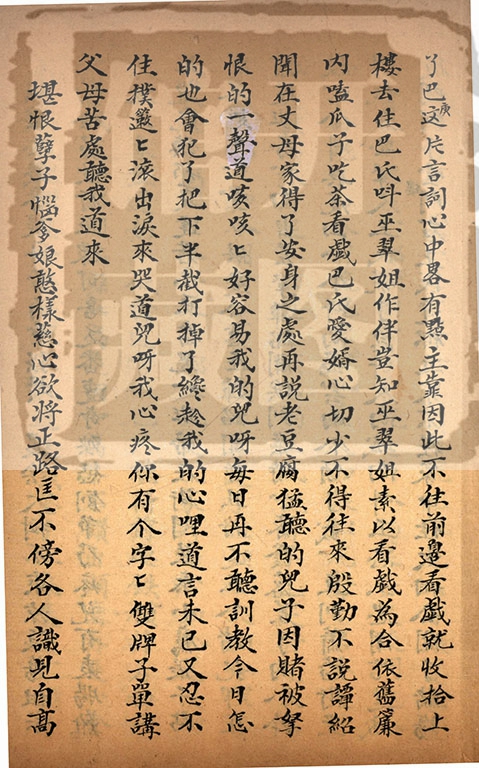 了巴庚這片言詞心中畧有點主靠因此不往前邊看戲就收拾上
樓去住巴氏呌巫翠姐作伴豈知巫翠姐素以看戲為合依舊簾
內嗑瓜子吃茶看戲巴氏愛婿心切少不得往來殷勤不說譚紹
聞在丈母家得了安身之處再說老豆腐猛聽的兒子因賭被拏
恨的一聲道咳咳〻好容易我的兒呀每日再不聽訓教今日怎
的也會犯了把下半截打掉了纔趁我的心哩道言未已又忍不
住撲邀〻滾出淚來哭道兒呀我心疼你有个字〻雙牌子單講
父母苦處聽我道來
堪恨孽子惱爹娘憨樣慈心欲將正路匡不傍各人識見自高